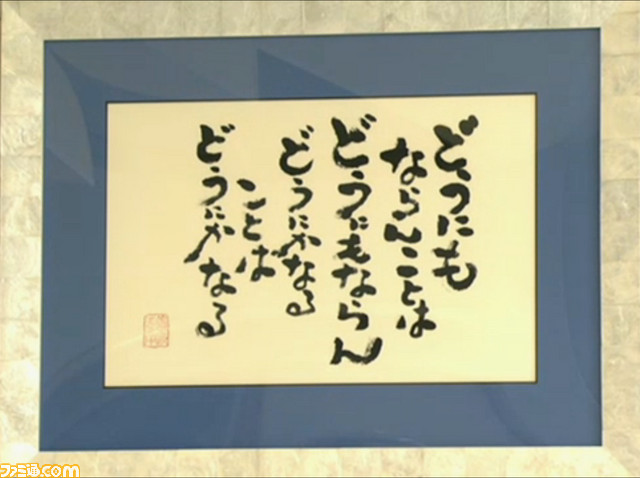 どうにも
ならんことは
どうにもならん
どうにかなる
ことは
どうにかなる
ファミ通.com